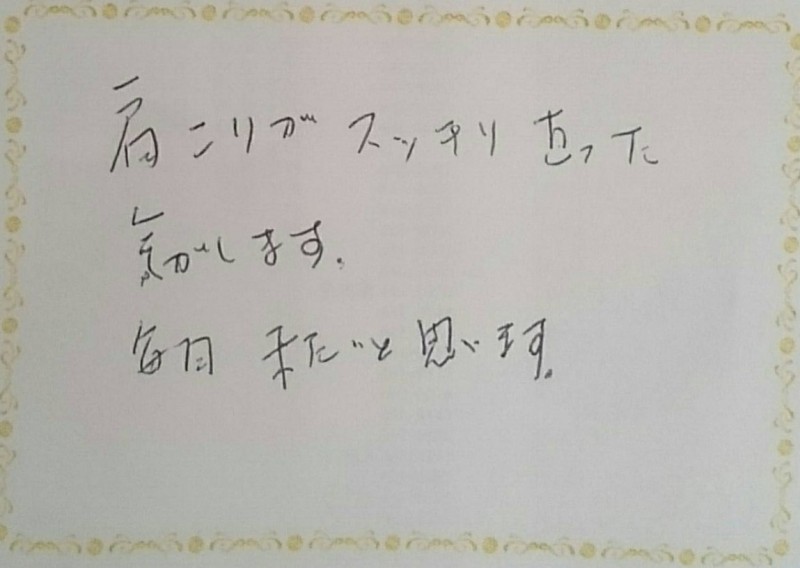 肩こりが スッキリ 直った
気がします.
毎日 来たいと 思います.